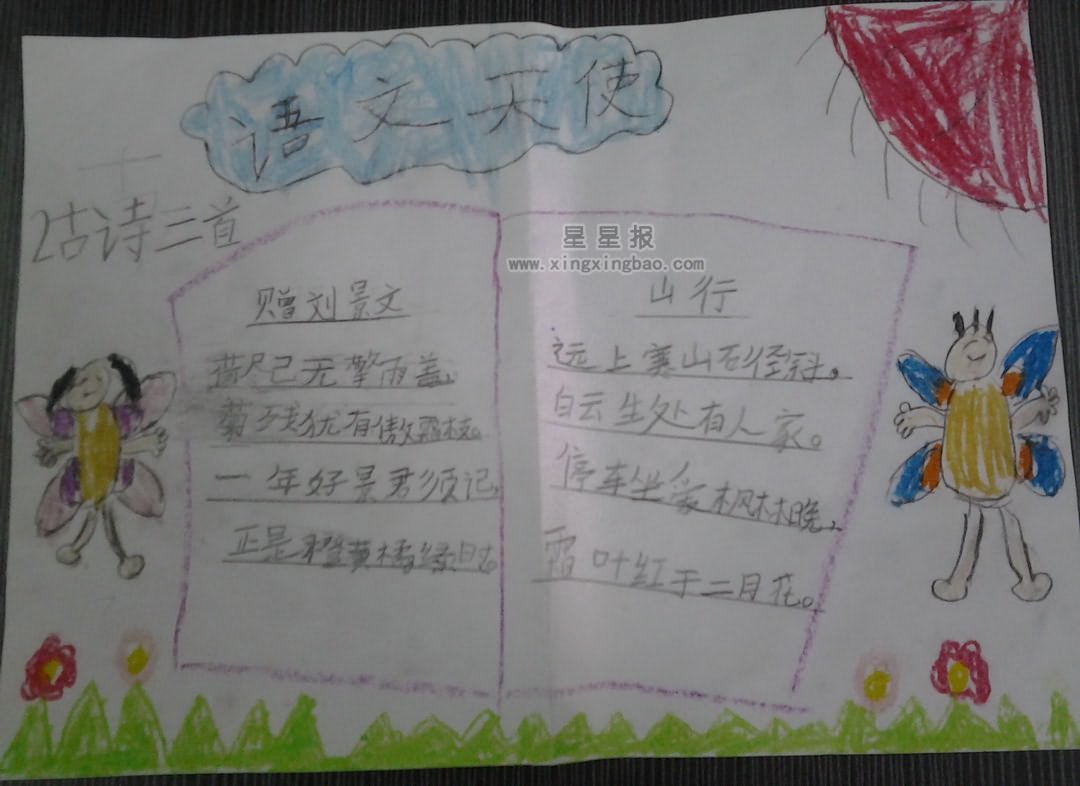 语文天使
2古诗三首
星星报
www.xingxingbao.com
赠刘景文
荷尽已无擎雨盖,
菊残犹有傲霜枝。
一年好景君须记
正是橙黄橘绿时。
山行
远上寒山石径斜。
白云生处有人家。
停车坐爱枫林晚,
霜叶红于二月花。